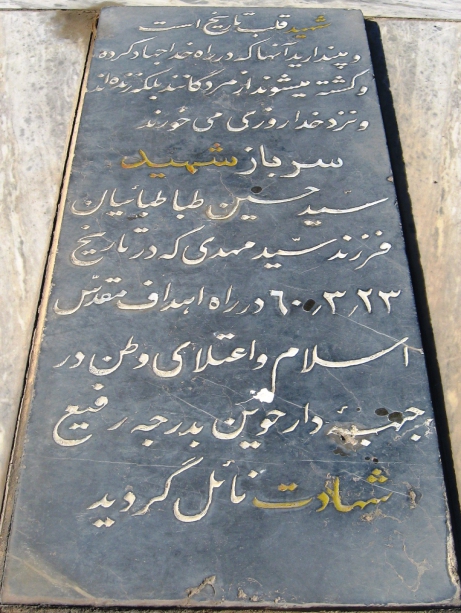 شهید قلب تاریخ است
و پندارید آنها که در راه خدا جهاد کرده
و کشته میشوند از مردگانند بلکه زنده‌اند
و نزد خدا روزی می خورند
سرباز شهید
سیّد حسین طباطبائیان
فرزند سیّد مهدی که در تاریخ
۶۰٫۳٫۲۳ در راه اهداف مقدّس
اسلام و اعتلای وطن در
جبههٔ دارخوئین بدرجه رفیع
شهادت نائل گردید